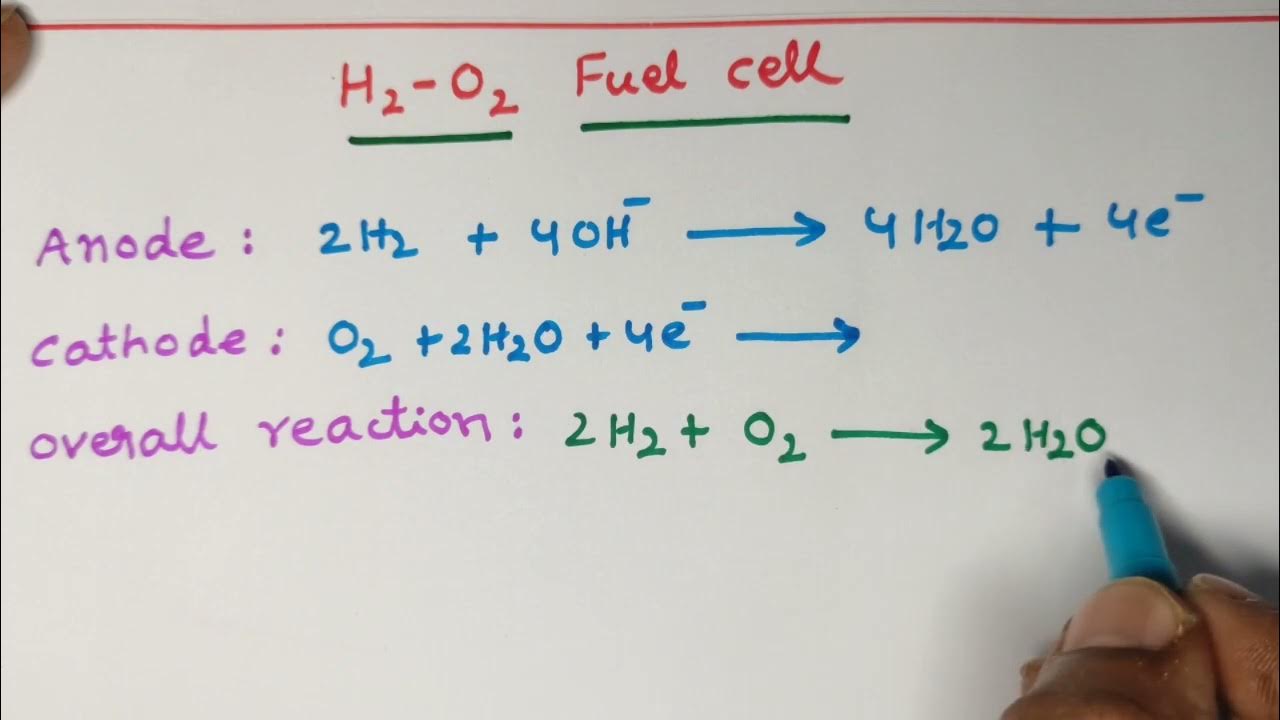 H₂-O₂ Fuel cell
Anode: 2H₂ + 4OH⁻ ⟶ 4H2O + 4e⁻
cathode: O₂ +2H₂O + 4e⁻ ⟶
overall reaction: 2H₂ + O₂ ⟶ 2H₂O